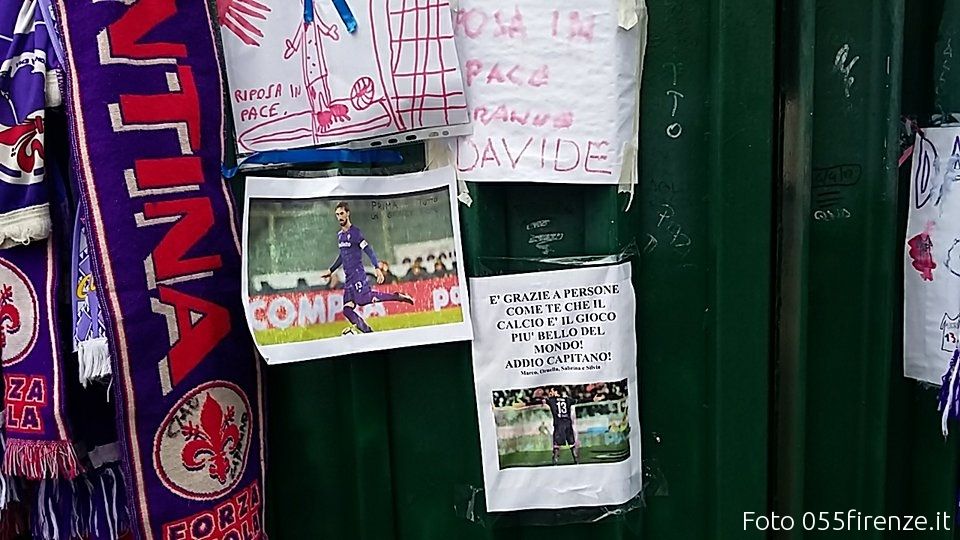 NTINA
FORZA
RIPOSA IN
PACE.
POSA IN
PACE
DAVIDE
PRIMA
13
COMPA
E' GRAZIE A PERSONE
COME TE CHE IL
CALCIO E' IL GIOCO
PIU' BELLO DEL
MONDO!
ADDIO CAPITANO!
Marco, Ornella, Sabrina e Silvia
13
ZA
LA
TTO
13
Foto 055firenze.it